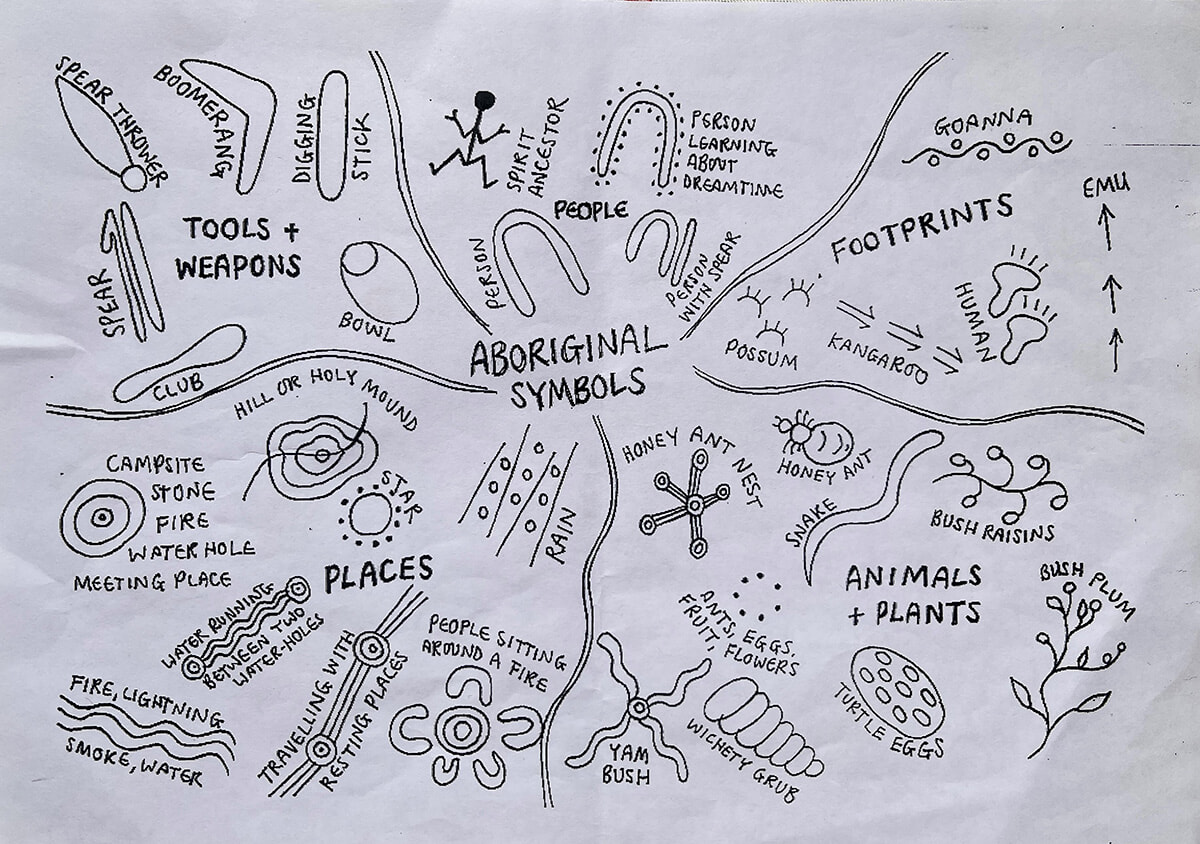 ABORIGINAL
SYMBOLS
TOOLS +
WEAPONS
SPEAR THROWER
BOOMERANG
DIGGING
STICK
SPEAR
BOWL
CLUB
PEOPLE
SPIRIT
ANCESTOR
PERSON
LEARNING
ABOUT
DREAMTIME
PERSON
PERSON
WITH SPEAR
FOOTPRINTS
GOANNA
EMU
HUMAN
POSSUM
KANGAROO
PLACES
HILL OR HOLY MOUND
CAMPSITE
STONE
FIRE
WATER HOLE
MEETING PLACE
STAR
RAIN
WATER RUNNING
BETWEEN TWO
WATER-HOLES
FIRE, LIGHTNING
SMOKE, WATER
TRAVELLING WITH
RESTING PLACES
PEOPLE SITTING
AROUND A FIRE
ANIMALS
+ PLANTS
HONEY ANT NEST
HONEY ANT
SNAKE
BUSH RAISINS
BUSH PLUM
ANTS, EGGS,
FRUIT, FLOWERS
YAM
BUSH
WICHETY GRUB
TURTLE EGGS